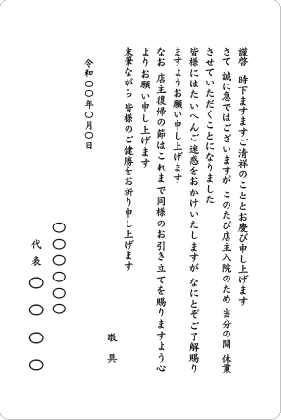 謹啓 時下ますますご清祥のこととお慶び申し上げます
さて 誠に急ではございますが このたび店主入院のため 当分の間 休業
させていただくことになりました
皆様にはたいへんご迷惑をおかけいたしますが なにとぞご了解賜り
ますようお願い申し上げます
なお 店主復帰の節はこれまで同様のお引き立てを賜りますよう心
よりお願い申し上げます
末筆ながら 皆様のご健勝をお祈り申し上げます
敬具
令和〇〇年〇月〇日
〇〇〇〇〇〇
代表 〇〇〇〇